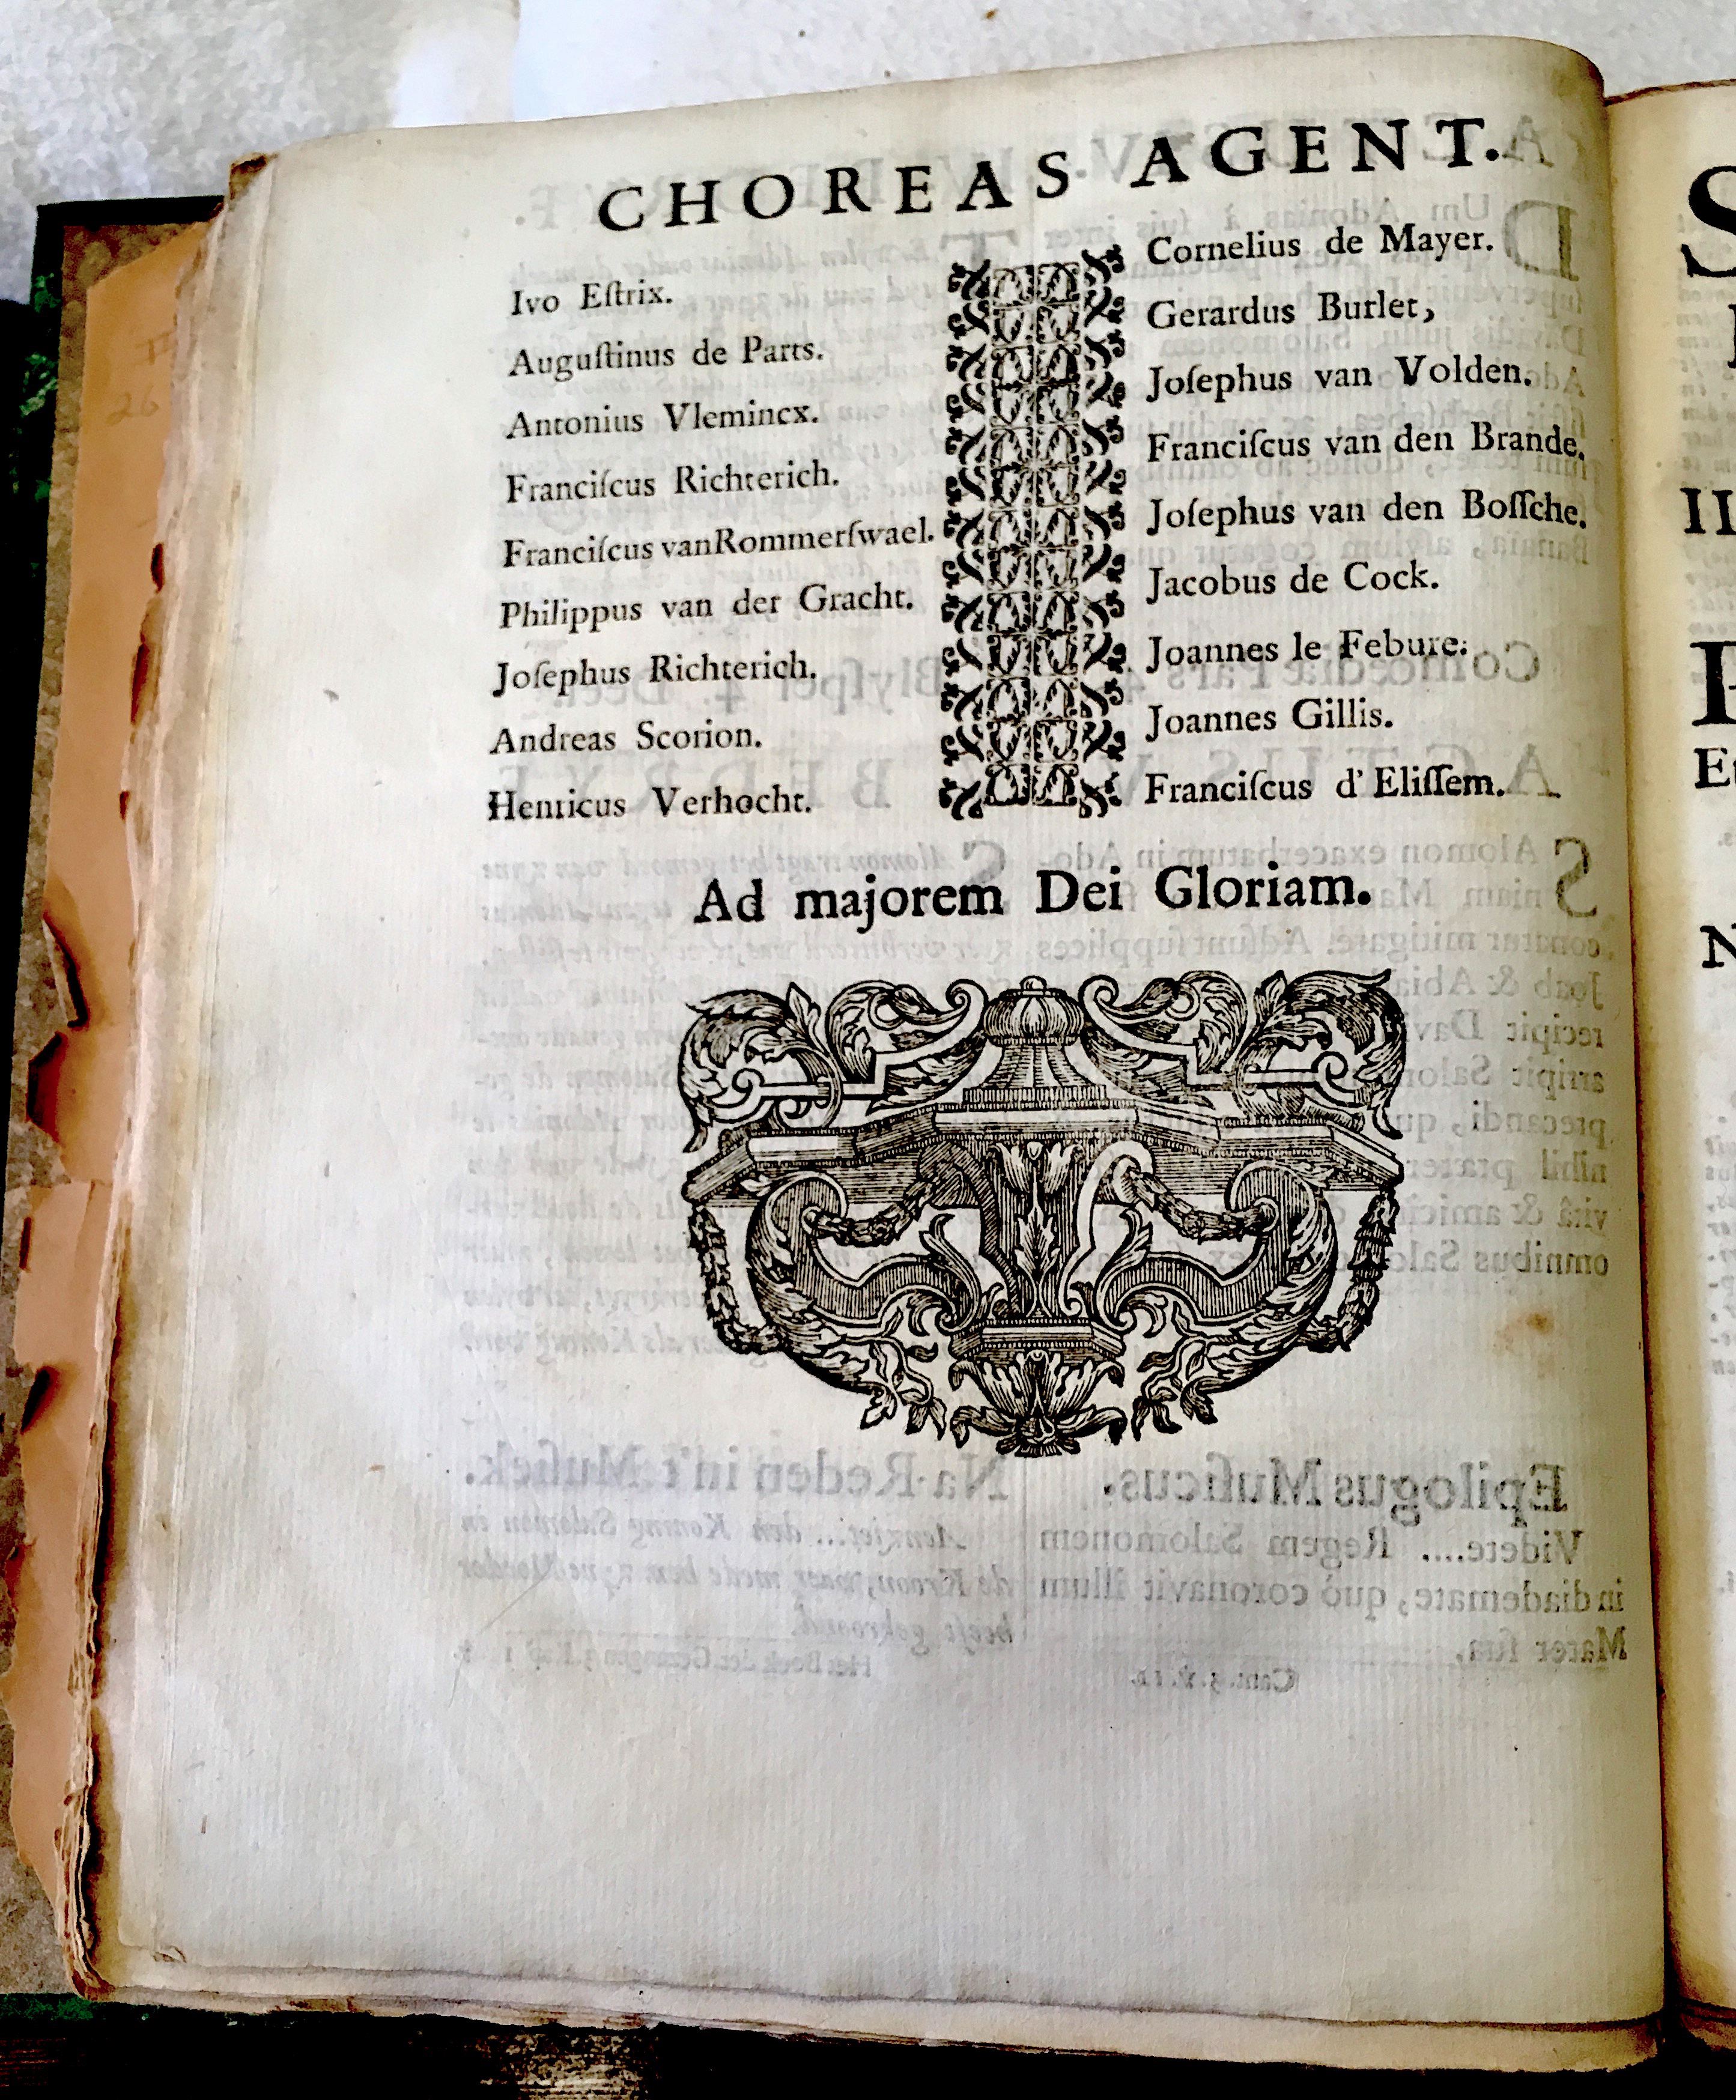 CHOREAS AGENT.
Ivo Eſtrix.
Auguſtinus de Parts.
Antonius Vlemincx.
Franciſcus Richterich.
Franciſcus vanRommerſwael.
Philippus van der Gracht.
Joſephus Richterich.
Andreas Scorion.
Henricus Verhocht.
Cornelius de Mayer.
Gerardus Burlet,
Joſephus van Volden.
Franciſcus van den Brande.
Joſephus van den Boſſche.
Jacobus de Cock.
Joannes le Febure.
Joannes Gillis.
Franciſcus d'Eliſſem.
Ad majorem Dei Gloriam.